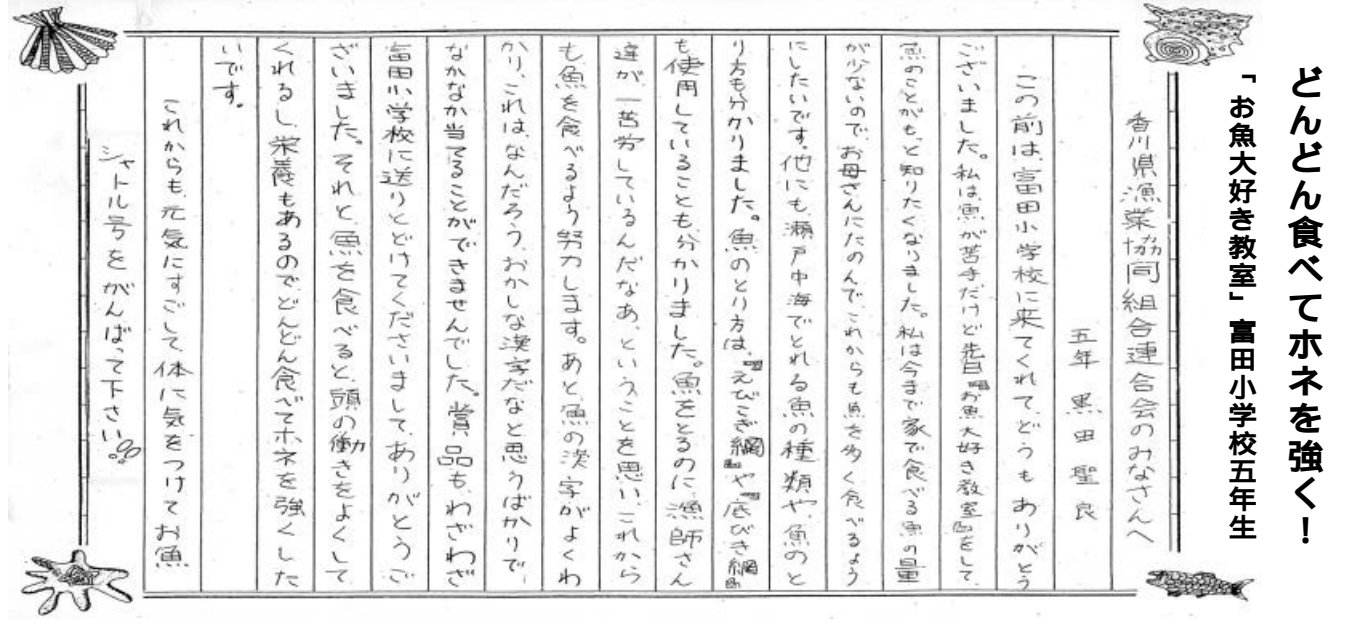 どんどん食べてホネを強く！
「お魚大好き教室」富田小学校五年生
香川県漁業協同組合連合会のみなさんへ
五年 黒田聖良
この前は、富田小学校に来てくれて、どうもありがとう
ございました。私は魚が苦手だけど先日『お魚大好き教室』をして、
魚のことがもっと知りたくなりました。私は今まで家で食べる魚の量
が少ないので、お母さんにたのんでこれからも魚を多く食べるよう
にしたいです。他にも、瀬戸中海でとれる魚の種類や、魚のと
り方も分かりました。魚のとり方は、『えびこぎ網』や『底びき網』
も使用していることも、分かりました。魚をとるのに、漁師さん
達が、一苦労しているんだなあ、ということを思い、これから
も魚を食べるよう努力します。あと、魚の漢字がよくわ
かり、これは、なんだろう、おかしな漢字だなと思うばかりで、
なかなか当てることができませんでした。賞品も、わざわざ
富田小学校に送りとどけてくださいまして、ありがとうご
ざいました。それと、魚を食べると、頭の働きをよくして
くれるし、栄養もあるのでどんどん食べてホネを強くした
いです。
これからも、元気にすごして、体に気をつけてお魚
シャトル号をがんばって下さい。